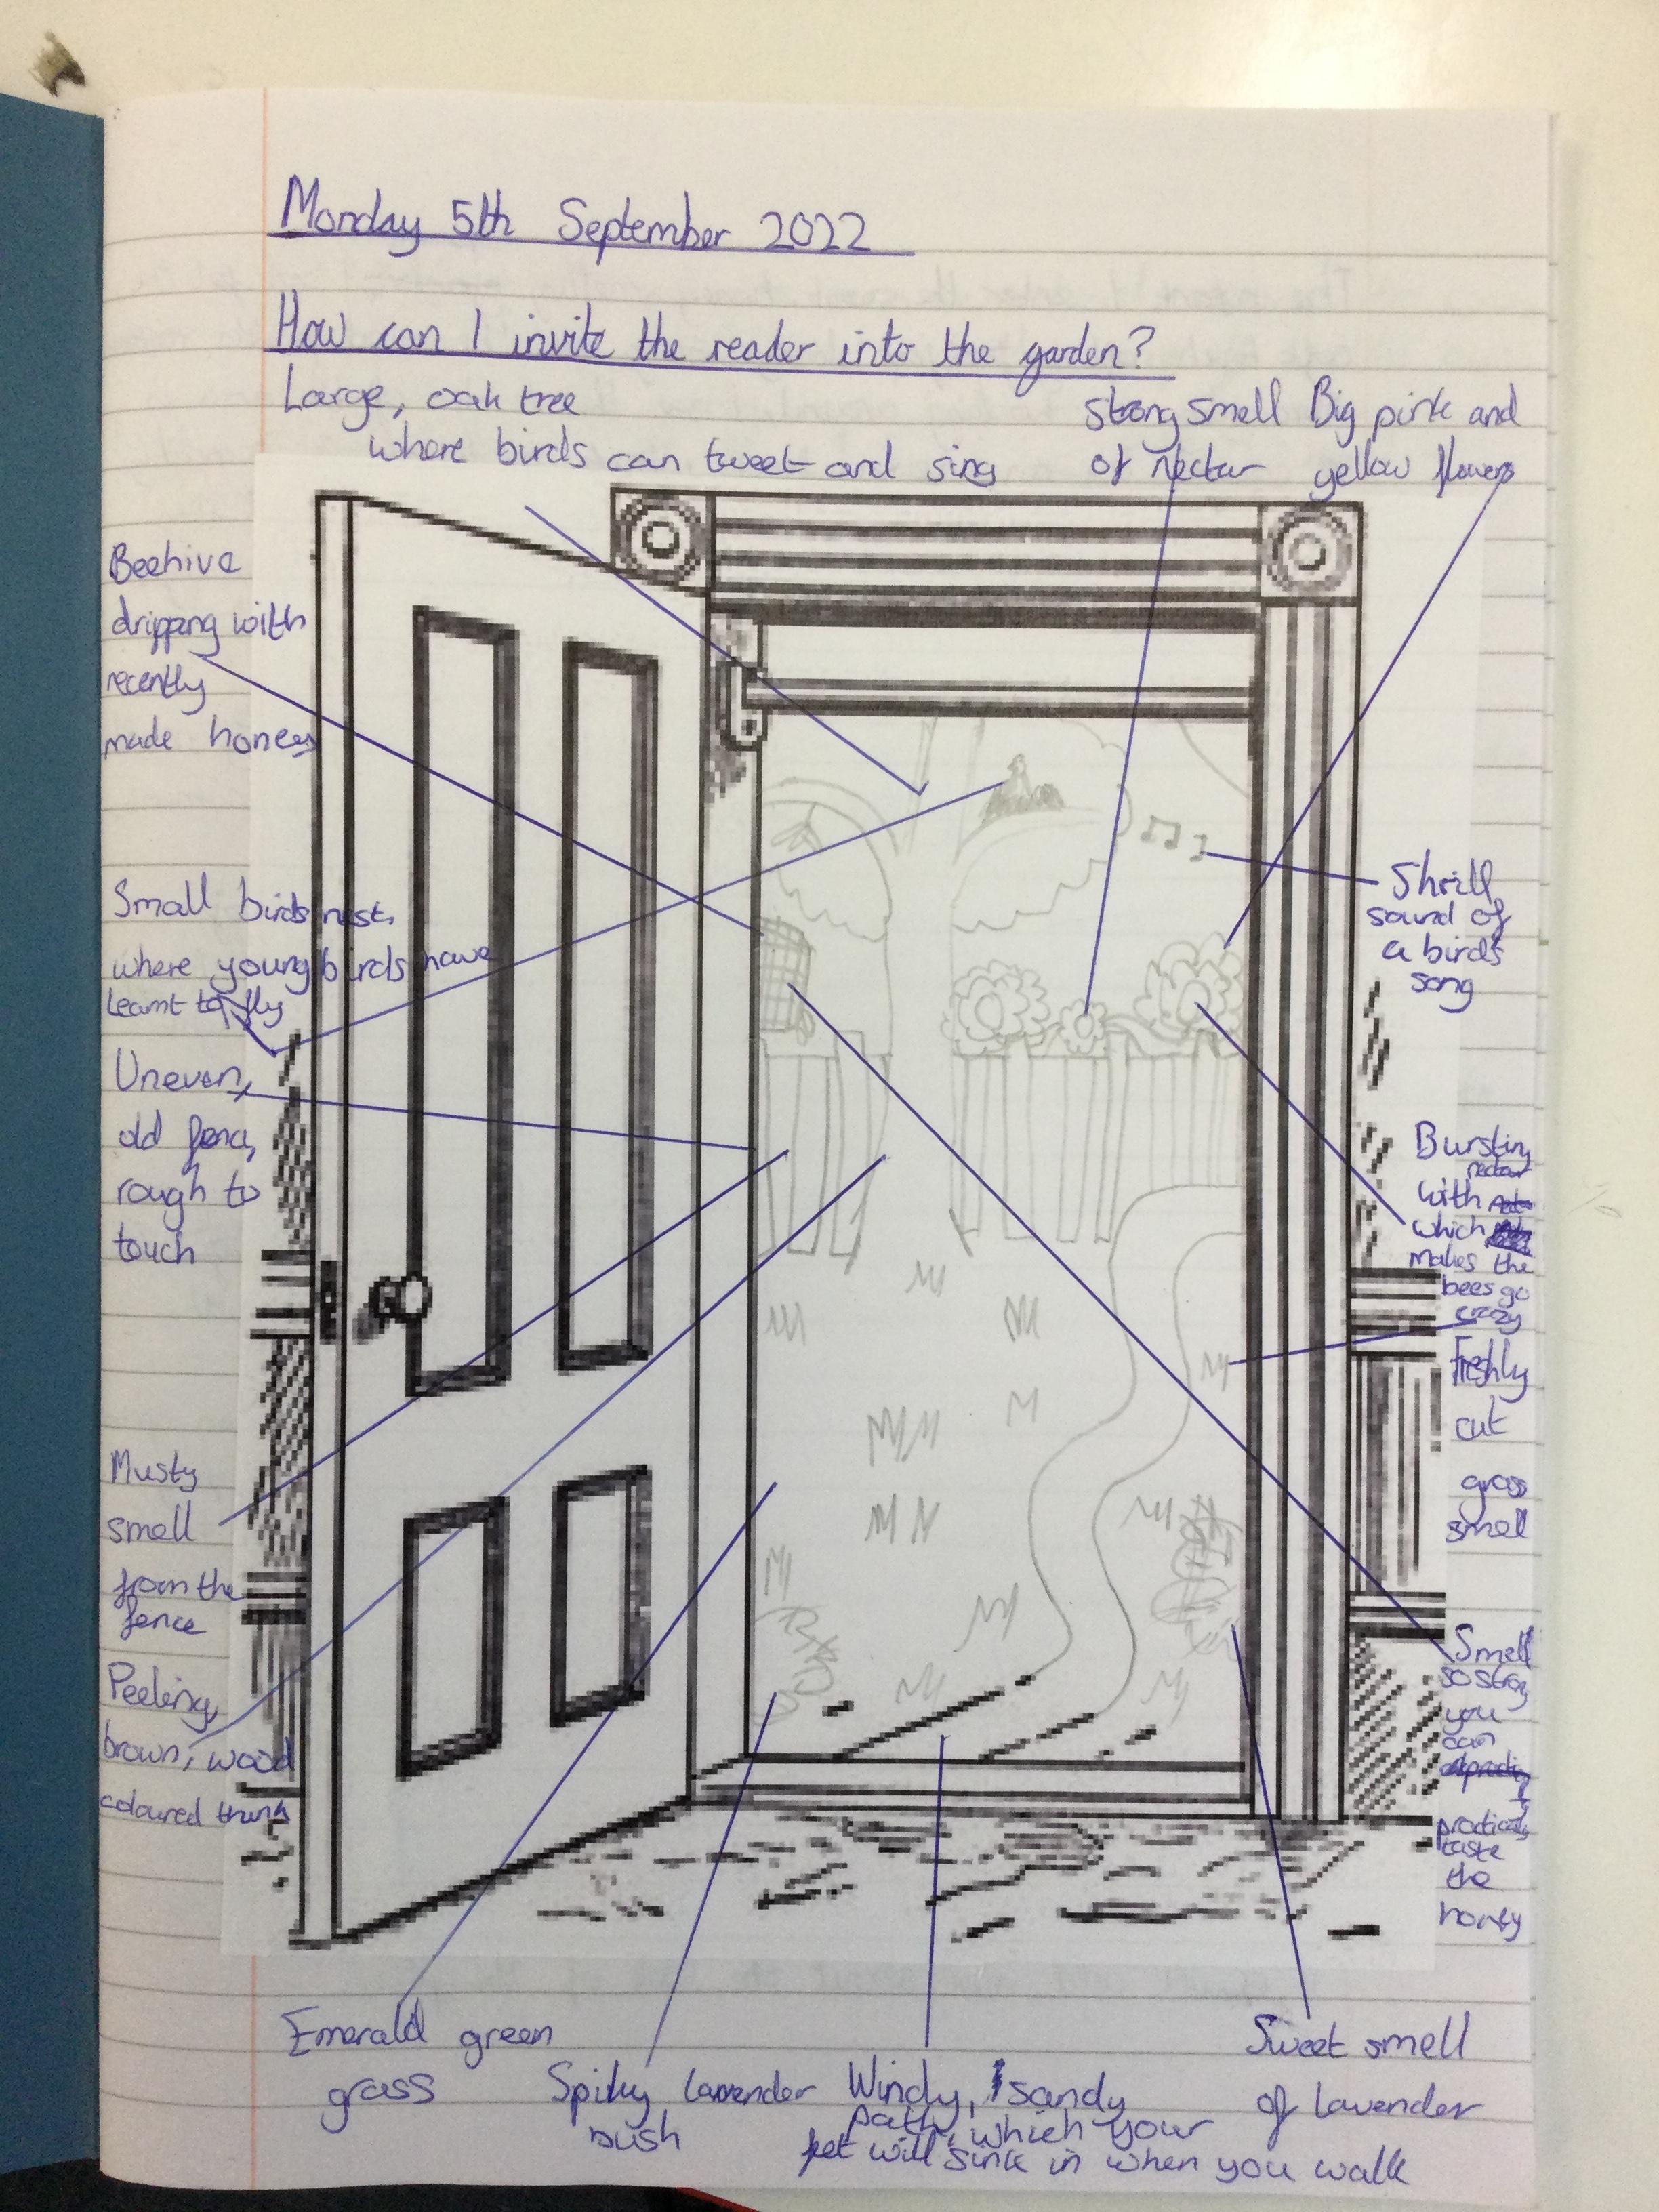 Monday 5th September 2022
How can I invite the reader into the garden?
Large, oak tree
where birds can tweet and sing
strong smell
of nectar
Big pink and
yellow flowers
Beehive
dripping with
recently
made honey
Small birds nest,
where young birds have
learnt to fly
Uneven,
old fence,
rough to
touch
Musty
smell
from the
fence
Peeling,
brown, wood
coloured trunk
Shrill
sound of
a bird's
song
Bursting
nectar
with
which
makes the
bees go
crazy
Freshly
cut
grass
smell
Smell
so strong
you
can
practically
taste
the
honey
Emerald green
grass
Spiky lavender
bush
Windy, sandy
path, which your
feet will sink in when you walk
Sweet smell
of lavender